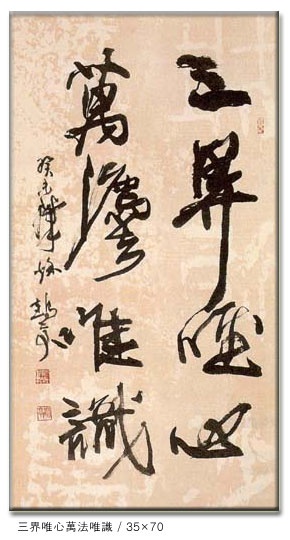 三界唯心
萬灋唯識
癸未
三界唯心萬法唯識 / 35×70